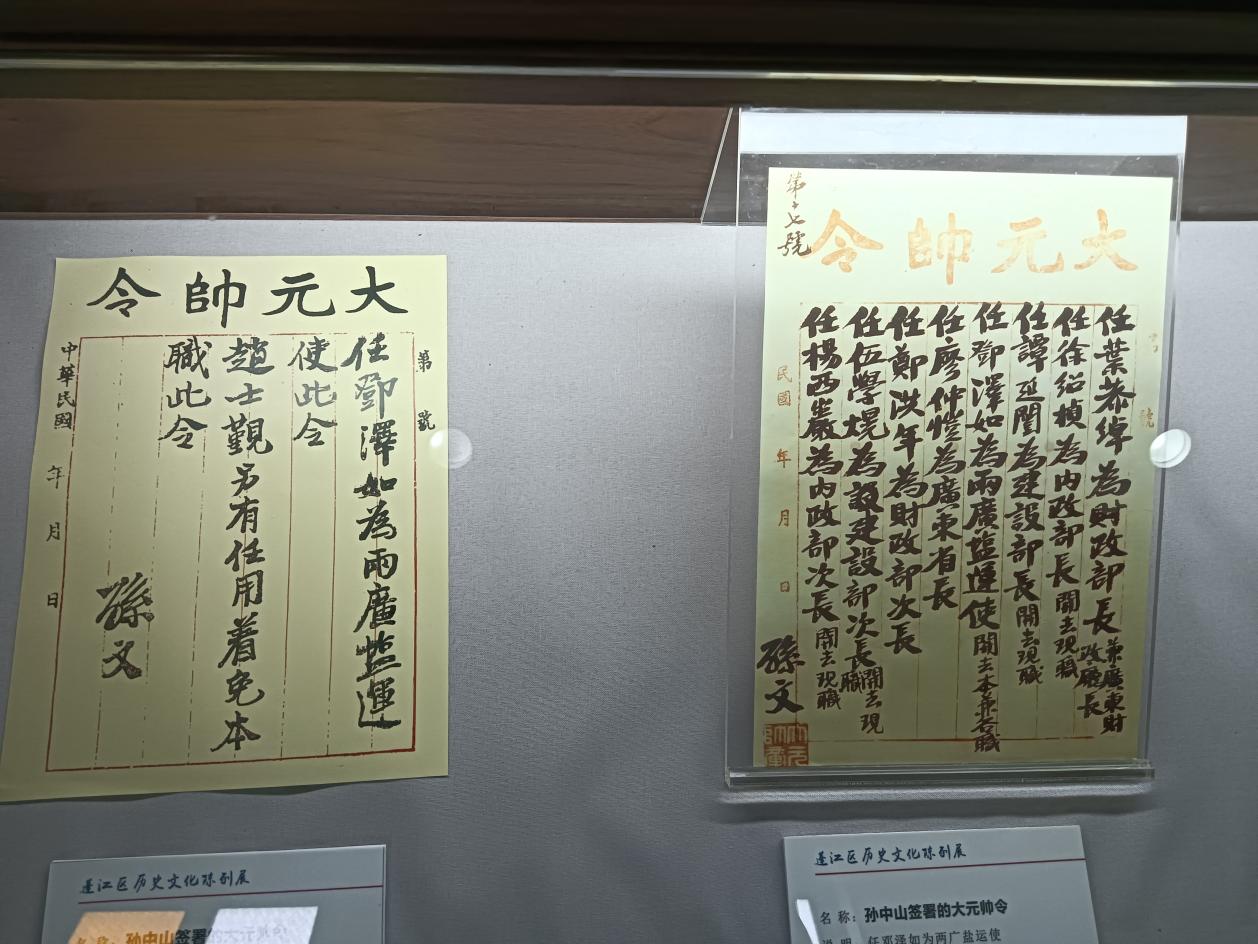 大元帥令
第 號
任鄧澤如為兩廣鹽運
使此令
趙士覲另有任用着免本
職此令
孫文
中華民國 年 月 日
蓬江区历史文化陈列展
名 称：孙中山签署的大元帅令
第十七號
大元帥令
號
任葉恭綽為財政部長兼廣東財政廳長
任徐紹楨為內政部長開去現職
任譚延闓為建設部長開去現職
任鄧澤如為兩廣鹽運使開去本兼各職
任廖仲愷為廣東省長
任鄭洪年為財政部次長
任伍學熀為建設部次長開去現職
任楊西巖為內政部次長開去現職
孫文
民國 年 月 日
蓬江区历史文化陈列展
名 称：孙中山签署的大元帅令
说 明：任邓泽如为两广盐运使